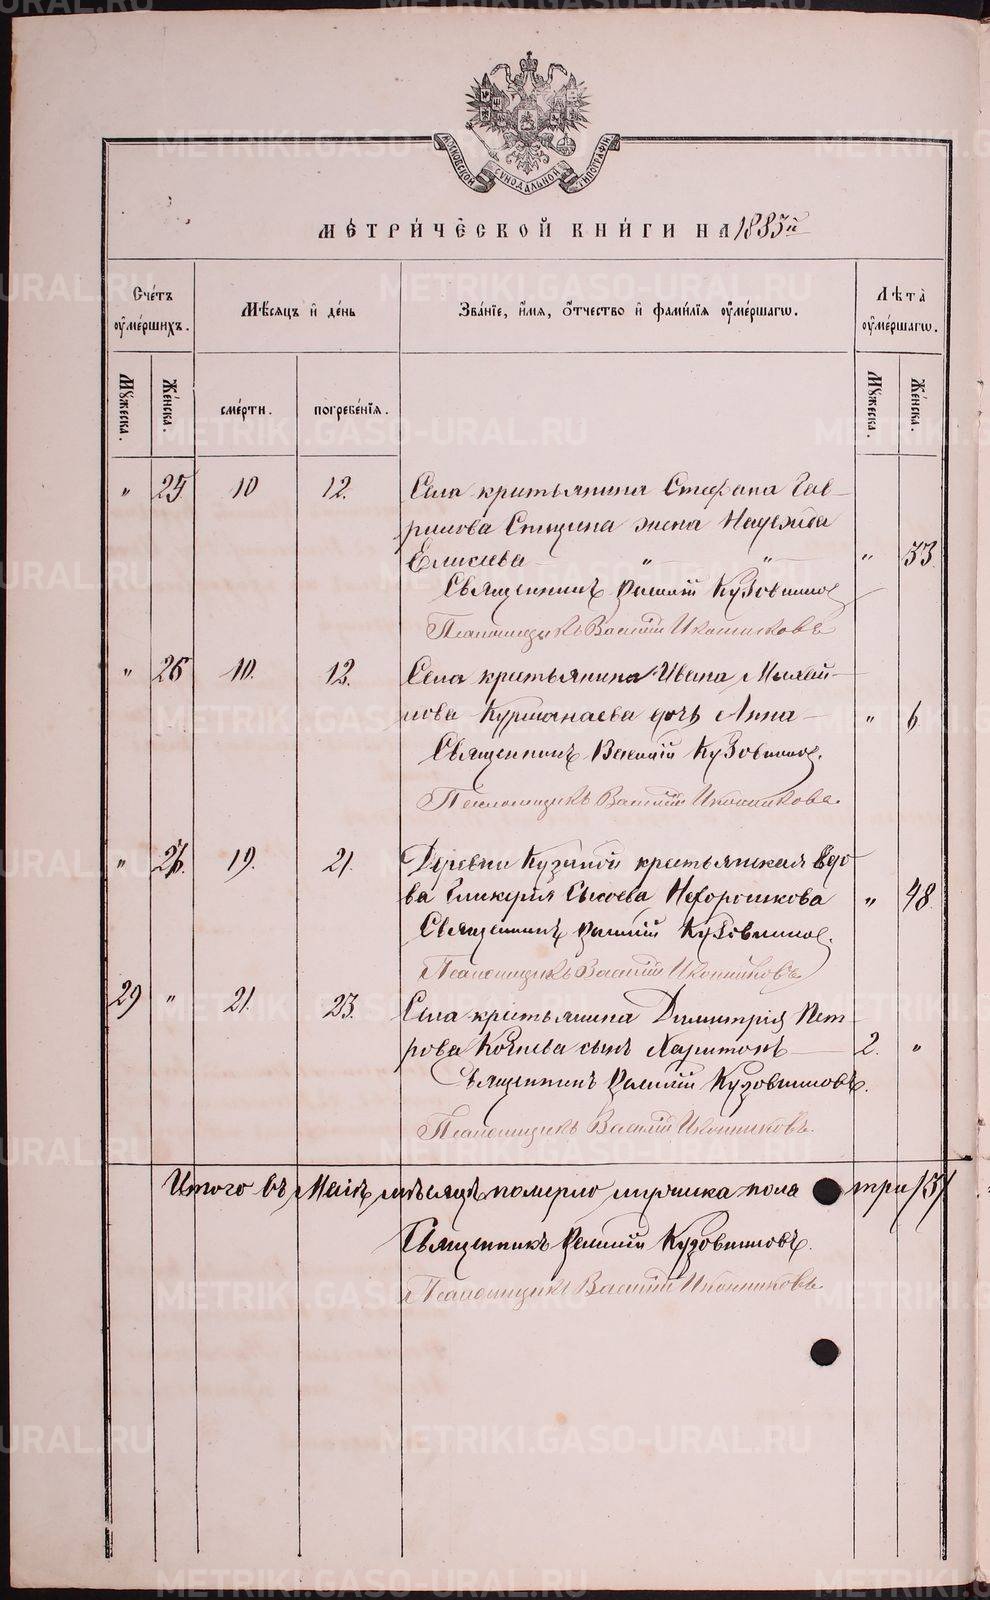 МОСКОВСКОЙ СѴНОДАЛЬНОЙ ТИПОГРАФІИ
МЕТРИ́ЧЕСКОЙ КНИ́ГИ НА 1885й
Сче́тъ ᲂу҆ме́ршихъ.
Мѣ́сѧцъ и҆ де́нь
Зва́нїе, и҆́мѧ, ѻ҆́тчество и҆ фами́лїѧ ᲂу҆ме́ршагѡ.
Лѣта̀ ᲂу҆ме́ршагѡ.
Мꙋ́жеска.
Же́нска.
сме́рти.
погребе́нїѧ.
Мꙋ́жеска.
Же́нска.
„ 25 10 12. Села крестьянина Стефана Гав-
рилова Спицина жена Надежда
Елисеева „ „ „ 53.
Священникъ Василій Кузовниковъ
Псаломщикъ Василій Иконниковъ
„ 26 10. 12. Села крестьянина Ивана Михай-
лова Курманаева дочь Анна — „ 6
Священникъ Василій Кузовниковъ.
Псаломщикъ Василій Иконниковъ.
„ 27. 19. 21. Деревни Кузиной крестьянская вдо
ва Гликерія Сысоева Нехорошкова „ 48.
Священникъ Василій Кузовниковъ.
Псаломщикъ Василій Иконниковъ
29 „ 21. 23. Села крестьянина Димитрія Пет-
рова Кочнева сынъ Харитонъ — 2. „
Священникъ Василій Кузовниковъ.
Псаломщикъ Василій Иконниковъ.
Итого въ Маѣ мѣсяцѣ померло мужеска пола три /3/
Священникъ Василій Кузовниковъ.
Псаломщикъ Василій Иконниковъ
METRIKI.GASO-URAL.RU